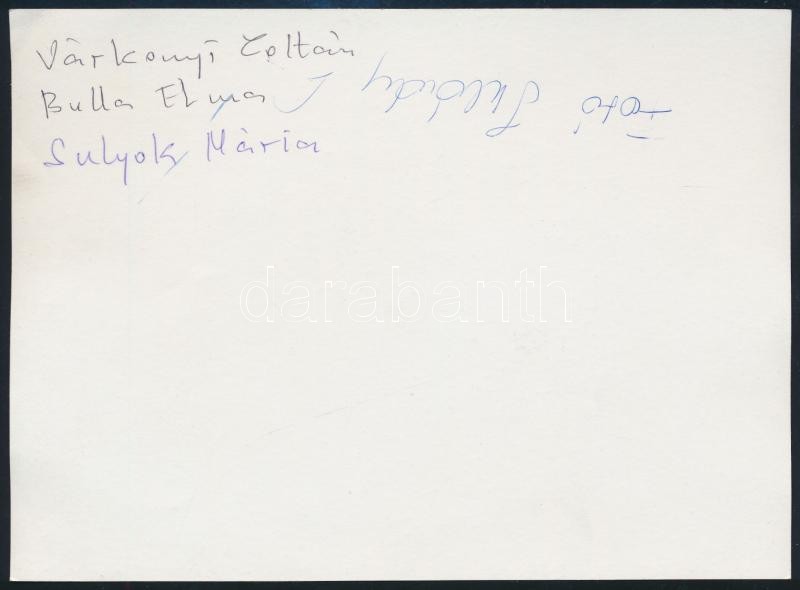 Várkonyi Zoltán
Bulla Elma
Sulyok Mária
Fotó
darabanth